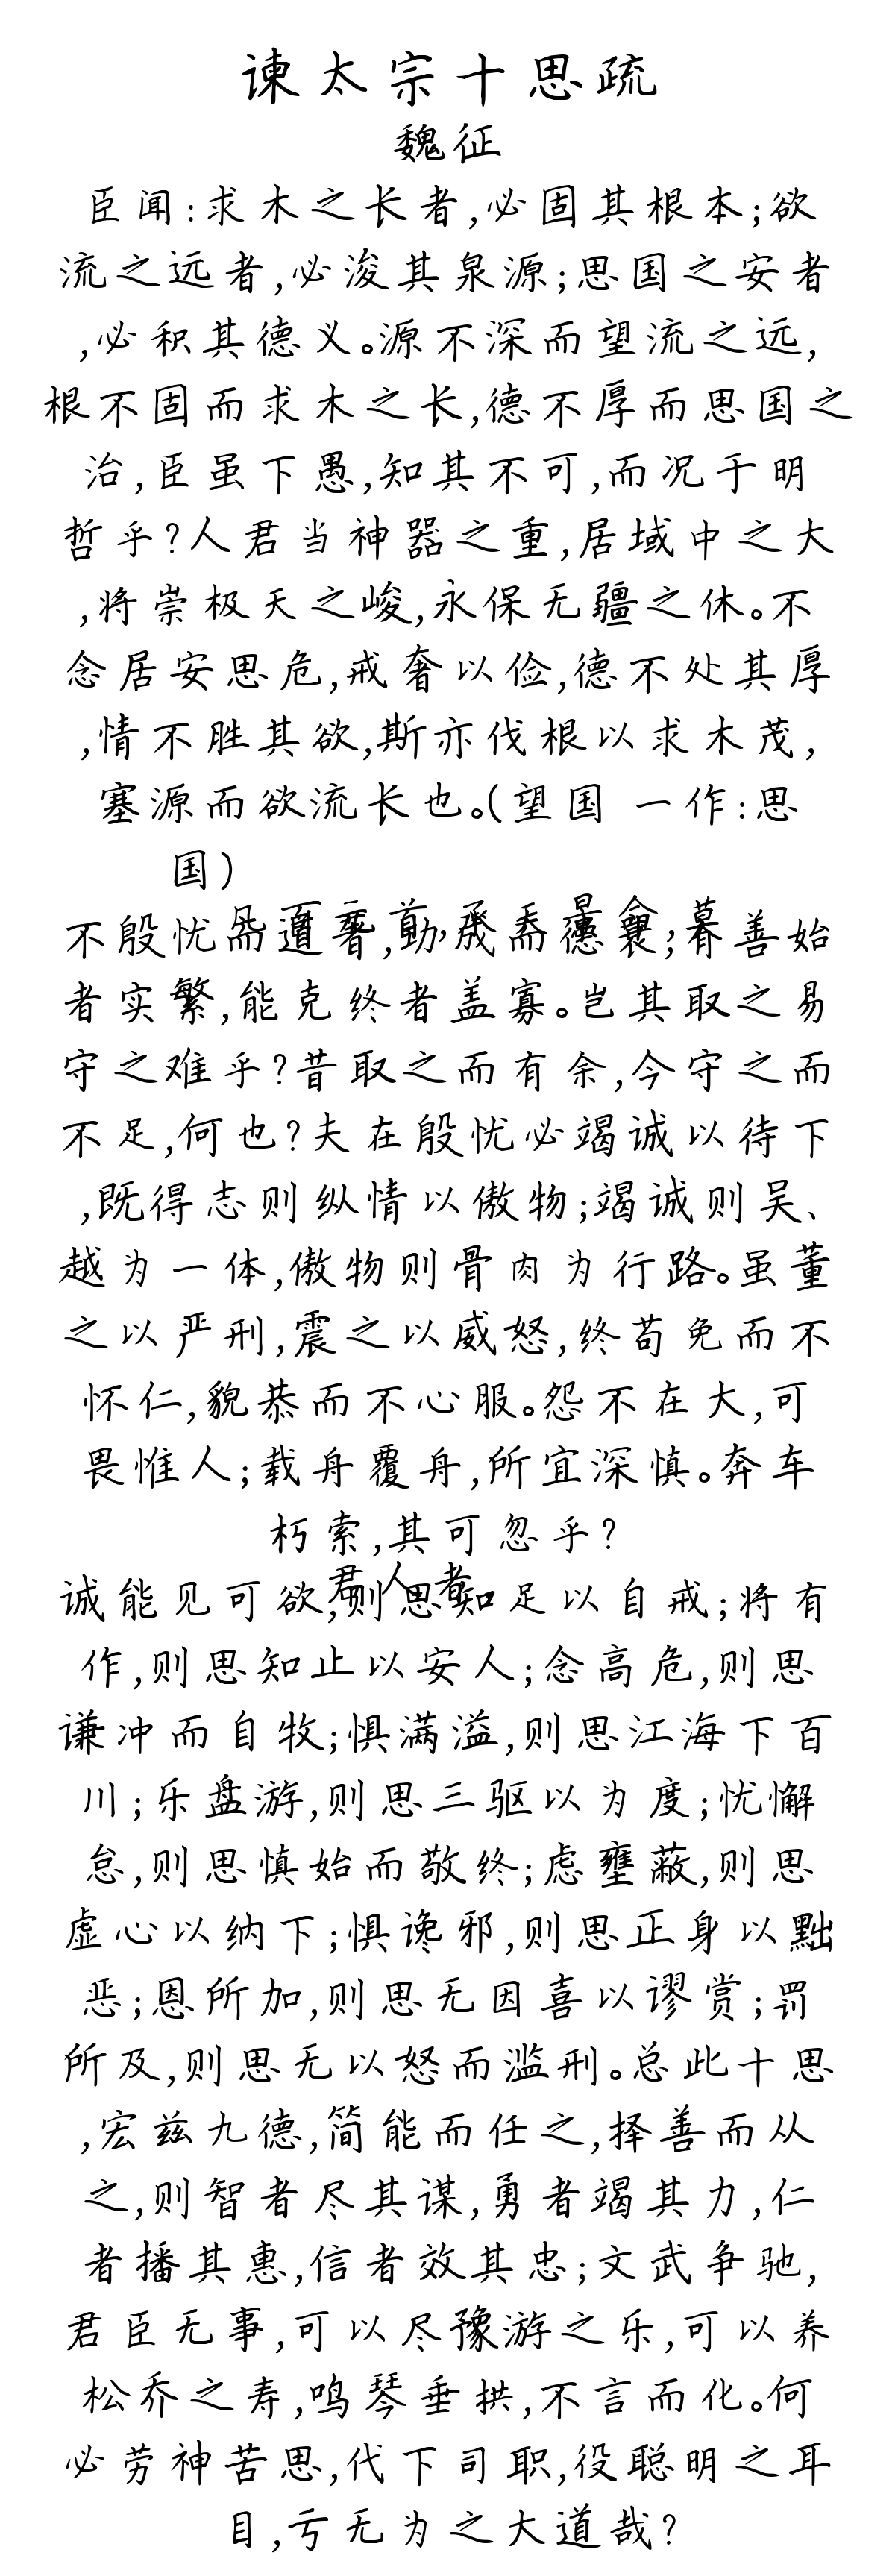 谏太宗十思疏
魏征
臣闻:求木之长者,必固其根本;欲
流之远者,必浚其泉源;思国之安者
,必积其德义。源不深而望流之远,
根不固而求木之长,德不厚而思国之
治,臣虽下愚,知其不可,而况于明
哲乎?人君当神器之重,居域中之大
,将崇极天之峻,永保无疆之休。不
念居安思危,戒奢以俭,德不处其厚
,情不胜其欲,斯亦伐根以求木茂,
塞源而欲流长也。(望国 一作:思
国)
凡百元首,承天景命,莫
不殷忧而道著,功成而德衰,有善始
者实繁,能克终者盖寡。岂其取之易
守之难乎?昔取之而有余,今守之而
不足,何也?夫在殷忧必竭诚以待下
,既得志则纵情以傲物;竭诚则吴、
越为一体,傲物则骨肉为行路。虽董
之以严刑,震之以威怒,终苟免而不
怀仁,貌恭而不心服。怨不在大,可
畏惟人;载舟覆舟,所宜深慎。奔车
朽索,其可忽乎?
君人者
诚能见可欲,则思知足以自戒;将有
作,则思知止以安人;念高危,则思
谦冲而自牧;惧满溢,则思江海下百
川;乐盘游,则思三驱以为度;忧懈
怠,则思慎始而敬终;虑壅蔽,则思
虚心以纳下;惧谗邪,则思正身以黜
恶;恩所加,则思无因喜以谬赏;罚
所及,则思无以怒而滥刑。总此十思
,宏兹九德,简能而任之,择善而从
之,则智者尽其谋,勇者竭其力,仁
者播其惠,信者效其忠;文武争驰,
君臣无事,可以尽豫游之乐,可以养
松乔之寿,鸣琴垂拱,不言而化。何
必劳神苦思,代下司职,役聪明之耳
目,亏无为之大道哉?